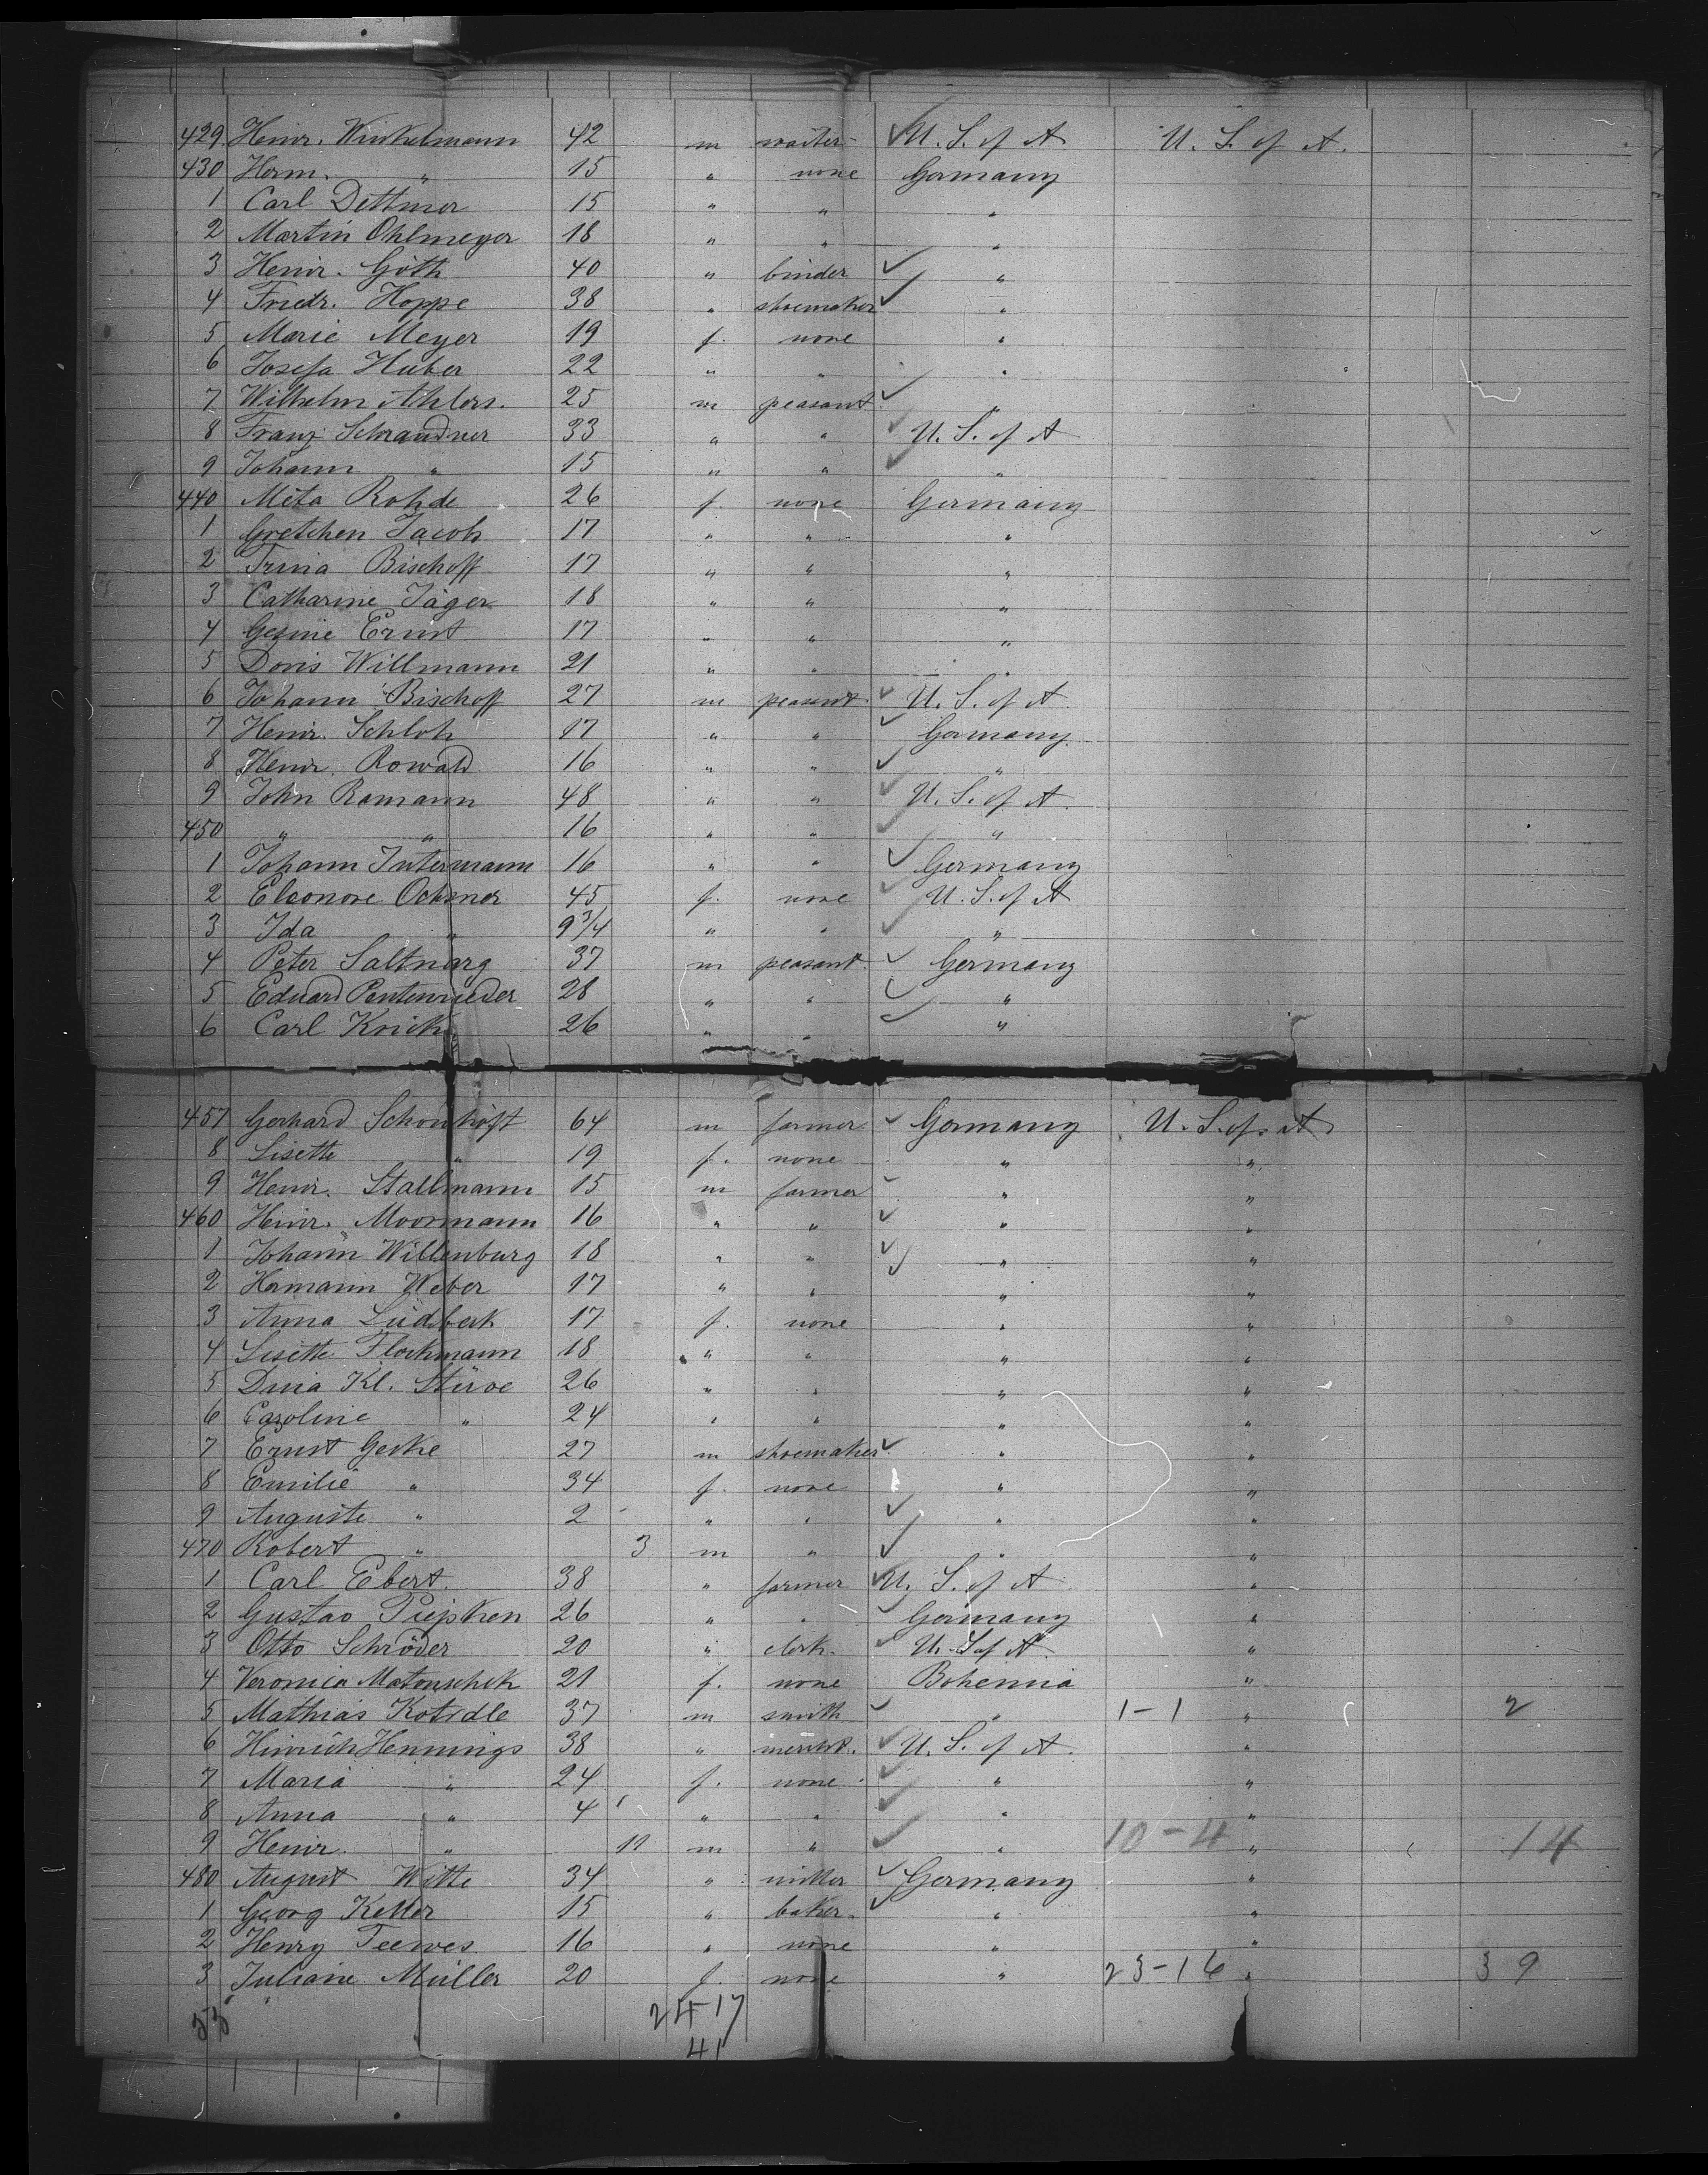 429 Heinr. Winkelmann 42 m waiter U. S. of A U. S. of A.
430 Herm. " 15 " none Germany
1 Carl Dettmer 15 " " "
2 Martin Ohlmeyer 18 " " "
3 Heinr. Göth 40 " binder "
4 Friedr. Hoppe 38 " shoemaker "
5 Marie Meyer 19 f. none "
6 Josefa Huber 22 " " "
7 Wilhelm Ahlers. 25 m peasant "
8 Franz Schrandner 33 " " U. S. of A
9 Johann " 15 " " "
440 Meta Rohde 26 f. none Germany
1 Gretchen Jacob 17 " " "
2 Trina Bischoff 17 " " "
3 Catharine Jäger 18 " " "
4 Gesine Ernst 17 " " "
5 Doris Willmann 21 " " "
6 Johann Bischoff 27 m peasant U. S. of A.
7 Heinr. Schloh 17 " " Germany.
8 Heinr. Rowald 16 " " "
9 John Ramann 48 " " U. S. of A.
450 " " 16 " " "
1 Johann Intermann 16 " " Germany
2 Eleonore Ochsner 45 f. none U. S. of A
3 Ida " 9 3/4 " " "
4 Peter Saltnarg 37 m peasant. Germany
5 Eduard Pentenrieder 28 " " "
6 Carl Krick 26 " " "
457 Gerhard Schonhöft 64 m farmer Germany U. S. of A
8 Lisette " 19 f. none " "
9 Heinr. Stallmann 15 m farmer " "
460 Heinr. Moormann 16 " " " "
1 Johann Willenburg 18 " " " "
2 Hermann Weber 17 " " " "
3 Anna Lüdbeck 17 f. none " "
4 Lisette Flockmann 18 " " " "
5 Dina Kl. Stüroe 26 " " " "
6 Caroline " 24 " " " "
7 Ernst Geske 27 m shoemaker " "
8 Emilie " 34 f. none " "
9 Auguste " 2 " " " "
470 Robert " 3 m " " "
1 Carl Ebert. 38 " farmer U. S. of A "
2 Gustav Piepken 26 " " Germany "
3 Otto Schröder 20 " clerk. U. S. of A. "
4 Veronica Matouschek 21 f. none Bohemia "
5 Mathias Kotrdle 37 m smith " 1-1 " 2
6 Hinrich Hennings 38 " mercht. U. S. of A. "
7 Maria " 24 f. none " "
8 Anna " 4 " " " "
9 Heinr. " 11 m " " 10-4 " 14
480 August Witte 34 " miller Germany "
1 Georg Keller 15 " baker " "
2 Henry Teewes 16 " none " "
3 Juliane Müller 20 f. none " 23-16 " 39
55 24 17
41